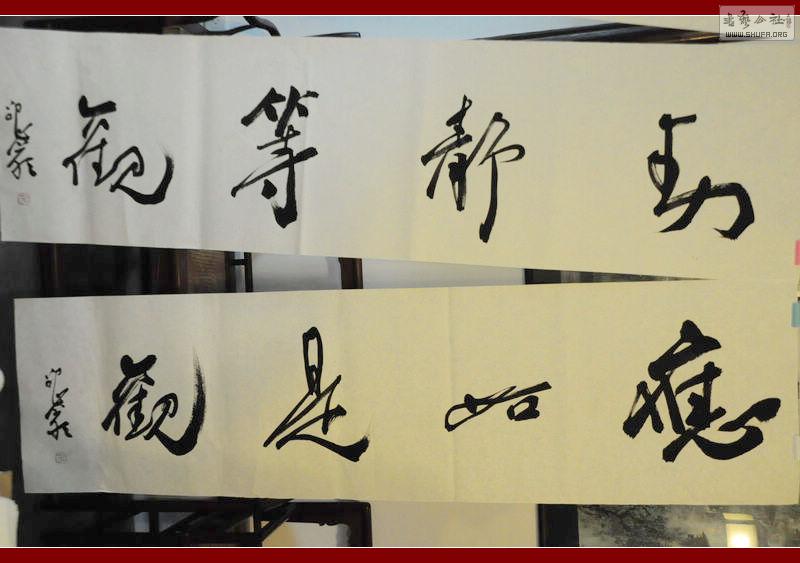 書藝公社
WWW.SHUFA.ORG
動靜等觀
應如是觀